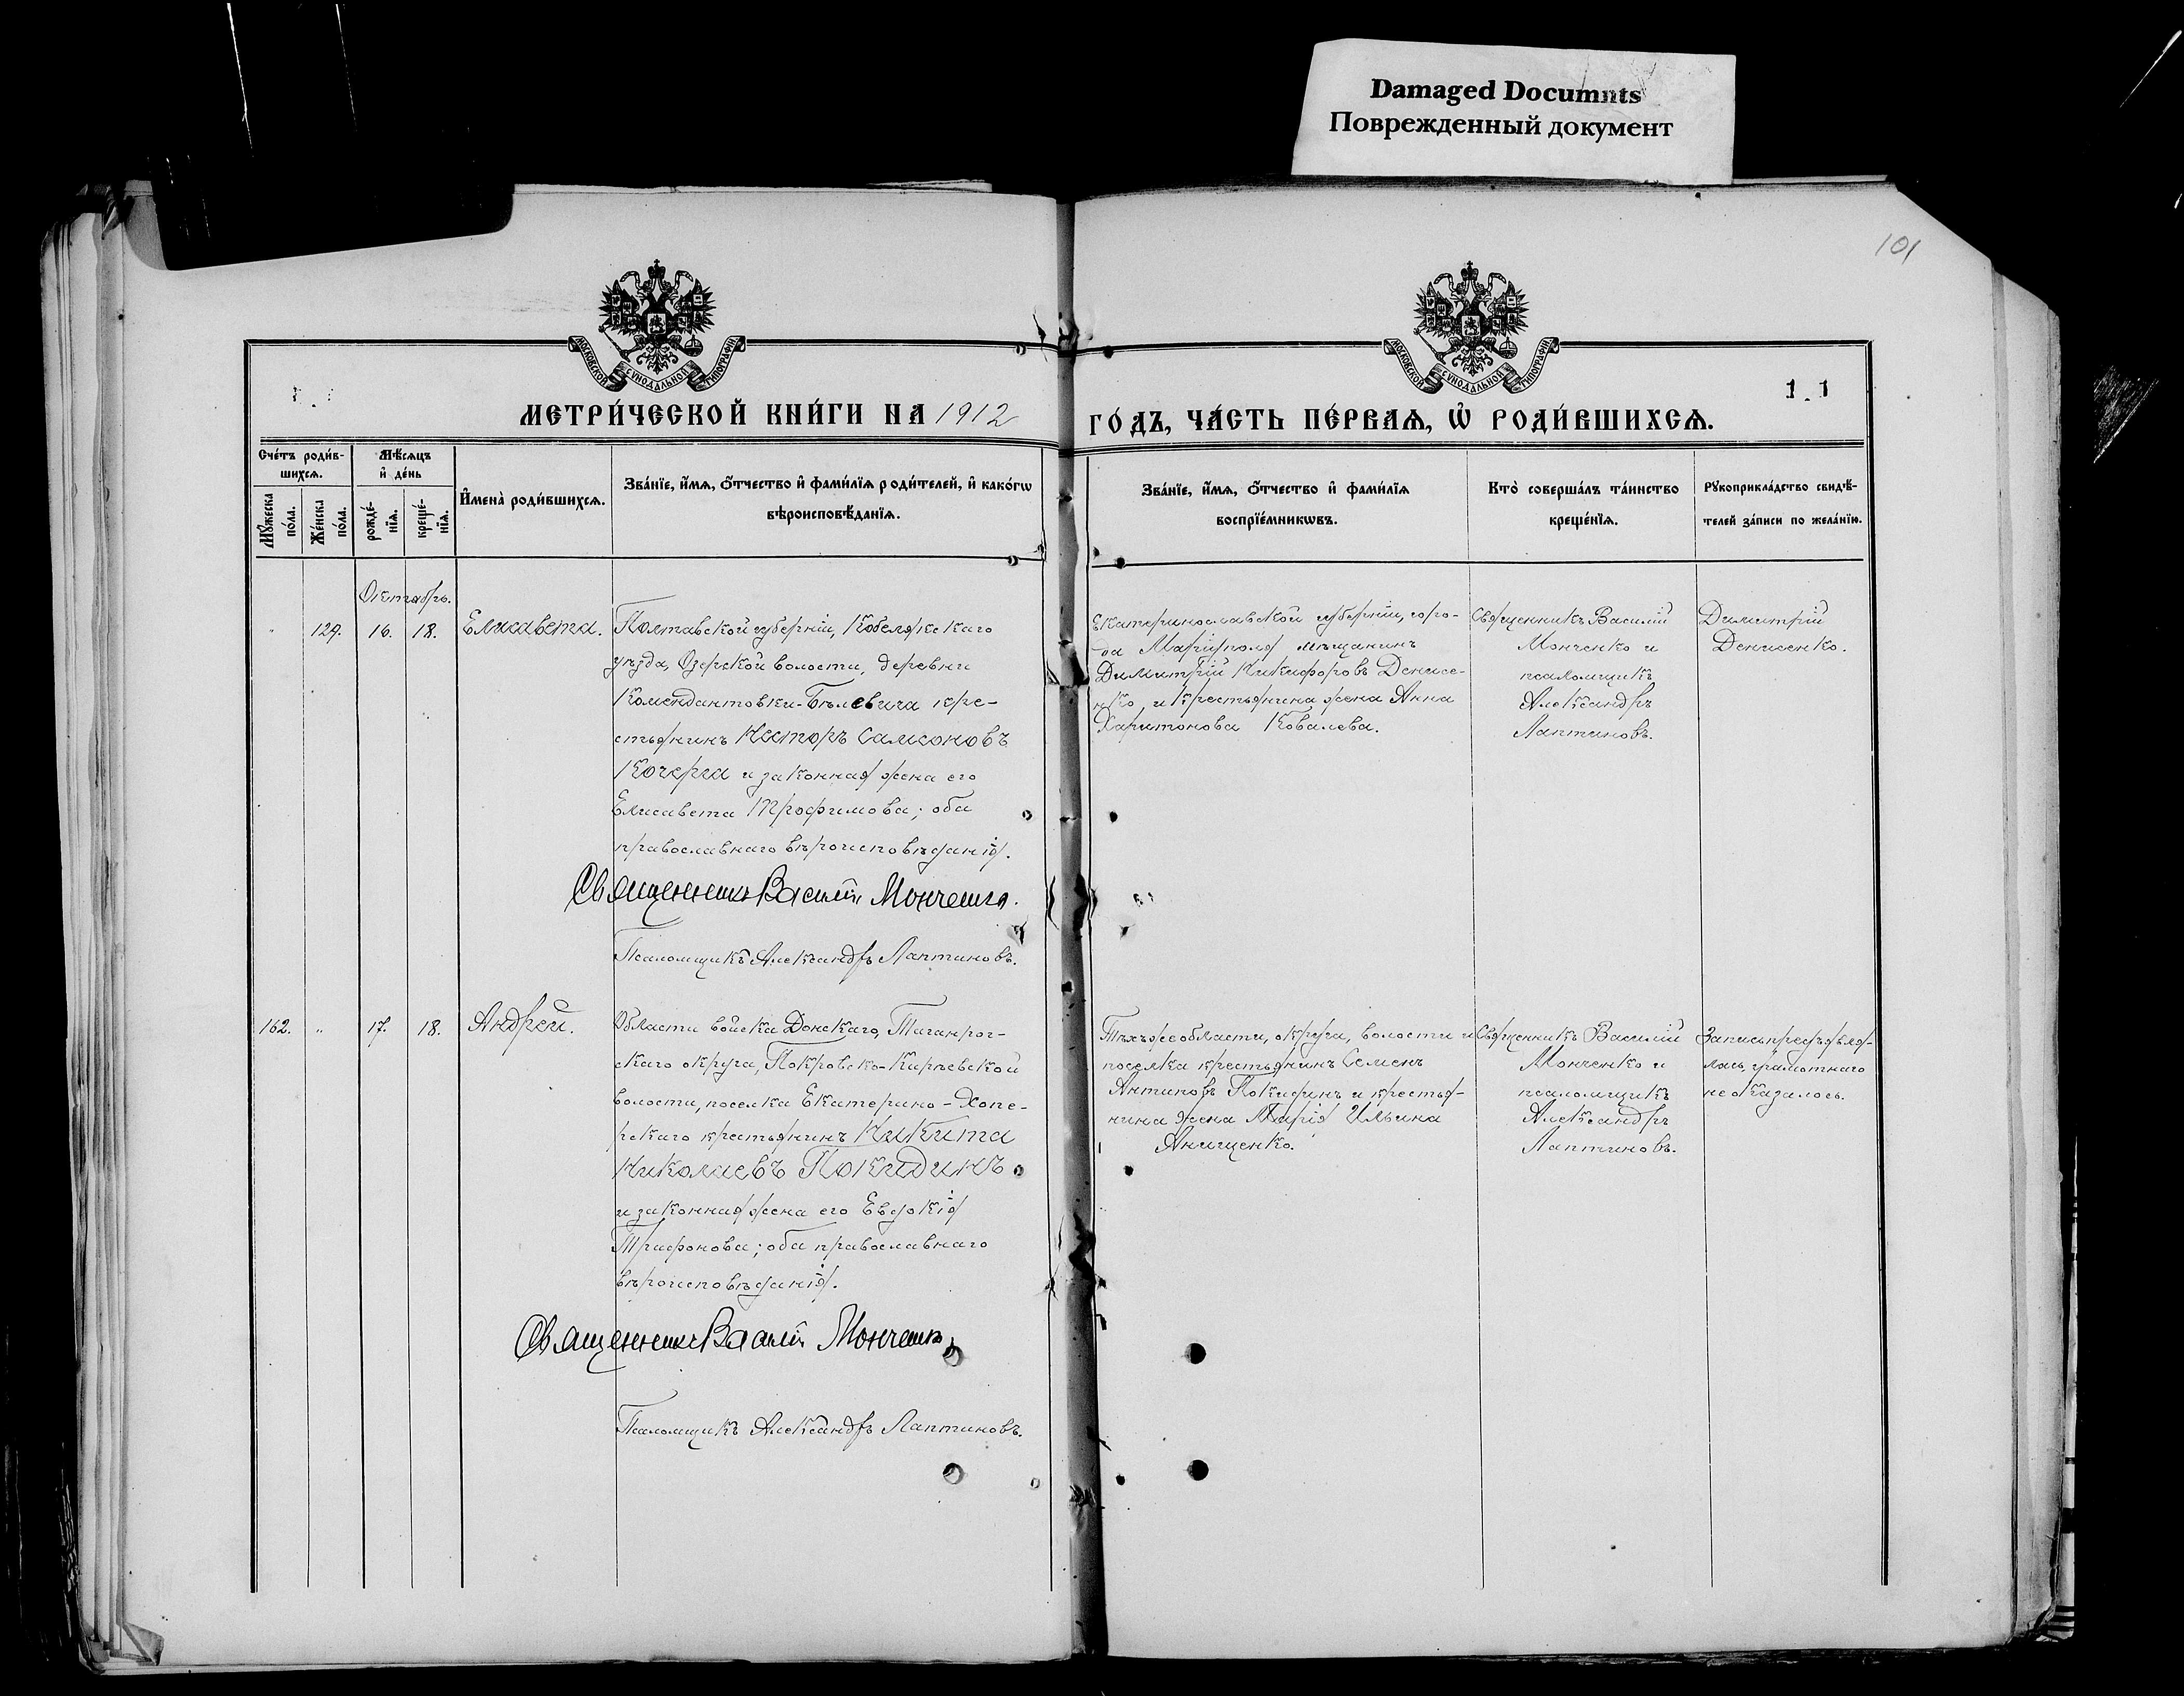 Damaged Documnts
Поврежденный документ
101
МОСКОВСКОЙ СѴНОДАЛЬНОЙ ТИПОГРАФІИ
МОСКОВСКОЙ СѴНОДАЛЬНОЙ ТИПОГРАФІИ
МЕТРИ́ЧЕСКОЙ КНИ́ГИ НА 1912
ГО́ДЪ, ЧА́СТЬ ПЕ́РВАѦ, Ѡ҆ РОДИ́ВШИХСѦ.
Сче́тъ роди́в-
шихсѧ.
Мꙋ́жеска по́ла.
Же́нска по́ла.
Мѣ́сѧцъ
и҆ де́нь
рожде́-нїѧ.
креще́-нїѧ.
И҆мена̀ роди́вшихсѧ.
Зва́нїе, и҆́мѧ, ѻ҆́тчество и҆ фами́лїѧ роди́телей, и҆ како́гѡ
вѣроисповѣ́данїѧ.
Зва́нїе, и҆́мѧ, ѻ҆́тчество и҆ фами́лїѧ
воспрїе́мникѡвъ.
Кто̀ соверша́лъ та́инство
креще́нїѧ.
Рꙋкоприкла́дство свидѣ́-
телей за́писи по жела́нїю.
Октябрь.
" 129. 16. 18. Елисавета.
Полтавской губерніи, Кобелякскаго
уѣзда, Озерской волости, деревни
Комендантовки-Бѣлевича кре-
стьянинъ Несторъ Самсоновъ
Кочерга и законная жена его
Елисавета Трофимова; оба
православнаго вѣроисповѣданія.
Священникъ Василій Монченко.
Псаломщикъ Александръ Лаптиновъ.
Екатеринославской губерніи, горо-
да Маріуполя мѣщанинъ
Димитрій Никифоровъ Денисе-
нко, и крестьянина жена Анна
Харитонова Ковалева.
Священникъ Василій
Монченко и
псаломщикъ
Александръ
Лаптиновъ.
Димитрій
Денисенко.
162. " 17. 18. Андрей.
Области войска Донскаго, Таганрог-
скаго округа, Покровско-Кирѣевской
волости, поселка Екатерино-Хопе-
рскаго крестьянинъ Никита
Николаевъ Покидинъ
и законная жена его Евдокія
Трифонова; оба православнаго
вѣроисповѣданія.
Священникъ Василій Монченко
Псаломщикъ Александръ Лаптиновъ.
Тѣхъ же области, округа, волости и
поселка крестьянинъ Семенъ
Антиновъ Покидинъ и крестья-
нина жена Марія Ильина
Анищенко.
Священникъ Василій
Монченко и
псаломщикъ
Александръ
Лаптиновъ.
Запись предъявля-
лась, грамотнаго
не оказалось.